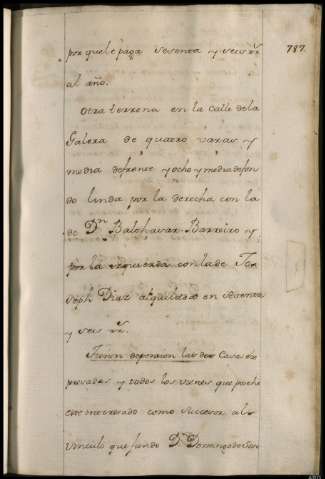 787.
por que le paga sesenta y seis rs.
al año.
Otra terrena en la Calle de la
Galera de quatro varas y
media de frente y ocho y media de fon
do linda por la derecha con la
de Dn Balthasar Barreiro y
por la izquierda con la de Jo-
seph Diaz alquilada en sesenta
y seis rs.
las dos Casas ex
presadas y todos los vienes que
este interesado como succesor al
vinculo que fundo Dn Domingo de